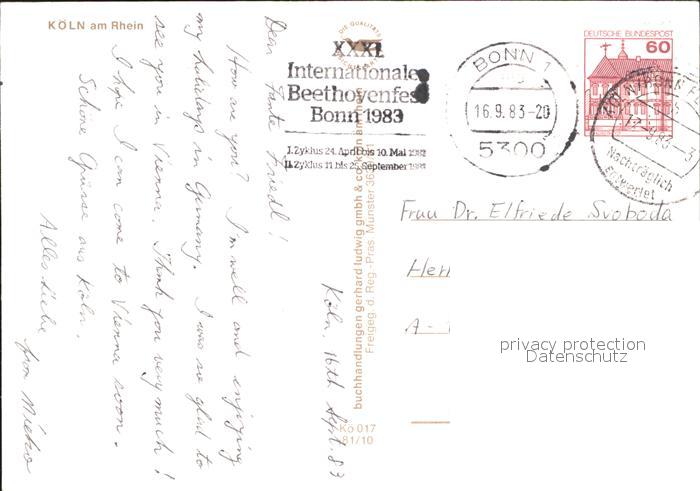 KÖLN am Rhein
DIE QUALITÄTS
XXXI.
Internationales
Beethovenfest
Bonn 1983
I. Zyklus 24. April bis 10. Mai 1983
II. Zyklus 11. bis 25. September 1983
BONN 1
16.9.83-20
5300
DEUTSCHE BUNDESPOST
60
Nachträglich
Entwertet
Köln, 16th Sept. 83
Dear Tante Friedl!
How are you? I'm well and enjoying
my holidays in Germany. I was so glad to
see you in Vienna. Thank you very much!
I hope I can come to Vienna soon.
Schöne Grüsse aus Köln.
Alles Liebe
from
buchhandlungen gerhard ludwig gmbh & co. köln am rhein
Freigeg. d. Reg.-Präs. Münster
Kö 017
81/10
Frau Dr. Elfriede Svoboda
Her
A-
privacy protection
Datenschutz